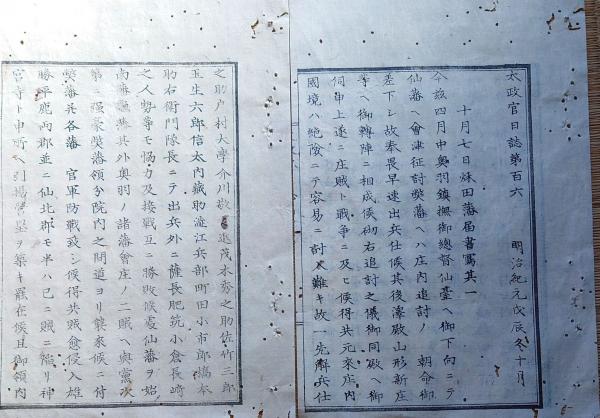 太政官日誌第百六 明治紀元戊辰冬十月
十月七日秌田藩屆書寫其一
今玆四月中奥羽鎮撫御總督仙臺ヘ御下向ニテ
仙藩ヘ會津征討弊藩ヘハ庄内追討ノ 朝命御
差下シ故奉畏早速出兵仕候其後澤殿山形新庄
等ヘ御轉陣ニ相成候砌右追討之儀御同殿ヘ御
伺申上遂ニ庄賊ト戰爭ニ及ヒ候得共元来庄内
國境ハ絶險ニテ容易ニ討入難キ故一先解兵仕
之助戸村大學介川敬之進茂木秀之助佐竹三郎
玉生六郎信太内藏助澁江兵部町田小市郎橋本
助右衛門隊長ニテ出兵外ニ薩長肥筑小倉長崎
之人数等モ恊力及接戰互ニ勝敗候處仙藩ヲ始
南審 兵外奥羽ノ諸藩會庄ノ二賊ヘ與黨次
第ニ强豪弊藩領分院内之間道ヨリ襲来候ニ付
弊藩兵各藩 官軍防戰致シ候得共賊愈侵入雄
勝平鹿兩郡並ニ仙北郡モ半ハ已ニ賊ニ陥リ神
宮寺ト申所ヘ引揚營壘ヲ築キ罷在候且御領内